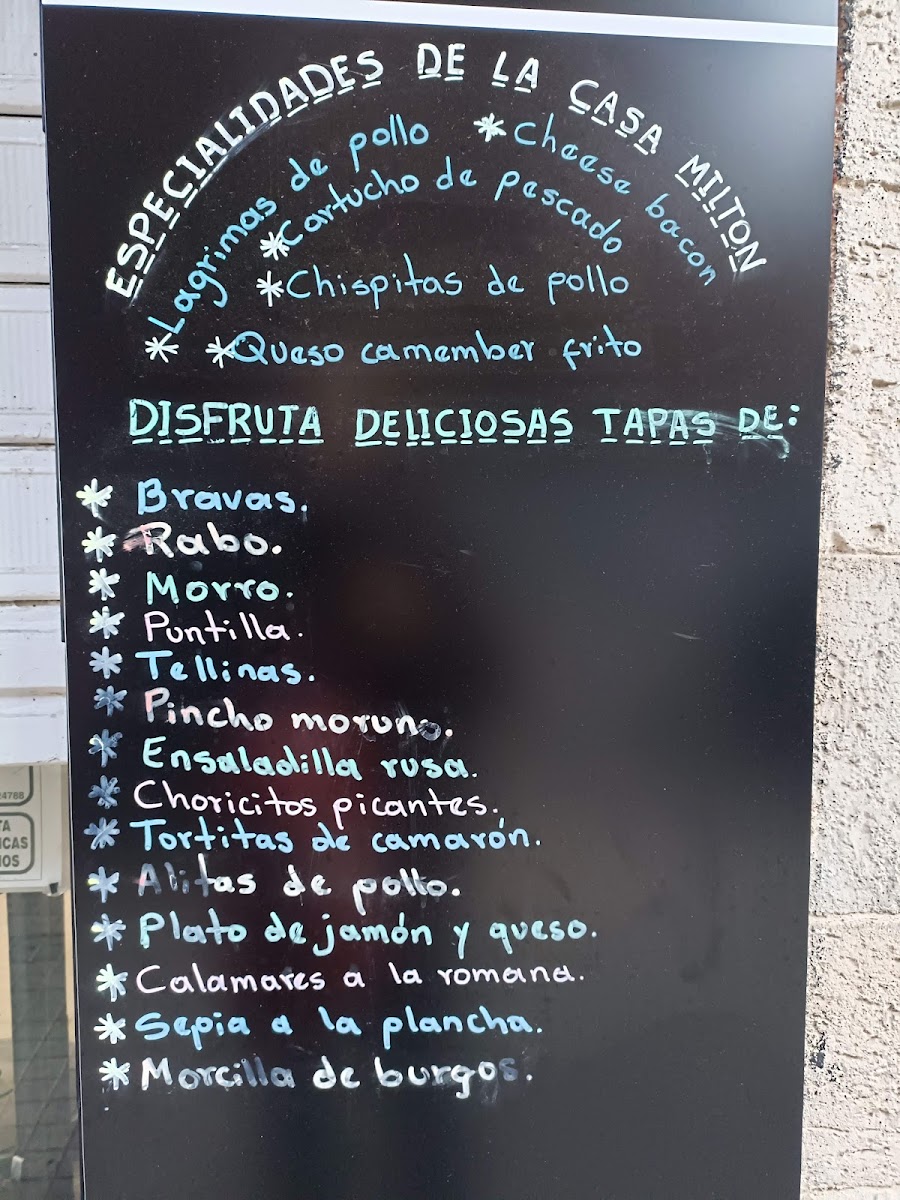 ESPECIALIDADES DE LA CASA MILTON
* Lagrimas de pollo
* Cheese bacon
* Cartucho de pescado
* Chispitas de pollo
* Queso camember frito
DISFRUTA DELICIOSAS TAPAS DE:
* Bravas.
* Rabo.
* Morro.
* Puntilla.
* Tellinas.
* Pincho moruno.
* Ensaladilla rusa.
* Choricitos picantes.
* Tortitas de camarón.
* Alitas de pollo.
* Plato de jamón y queso.
* Calamares a la romana.
* Sepia a la plancha.
* Morcilla de burgos.
24768